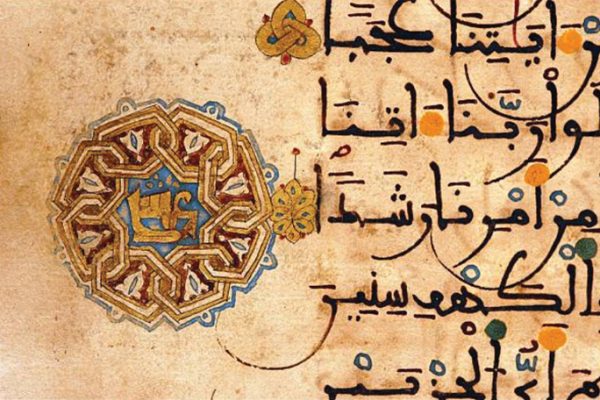 ايتنا عجبا
لوا ربنا اتنا
من امرنا رشدا
عشر
الكهف سنين
اي الحزبين